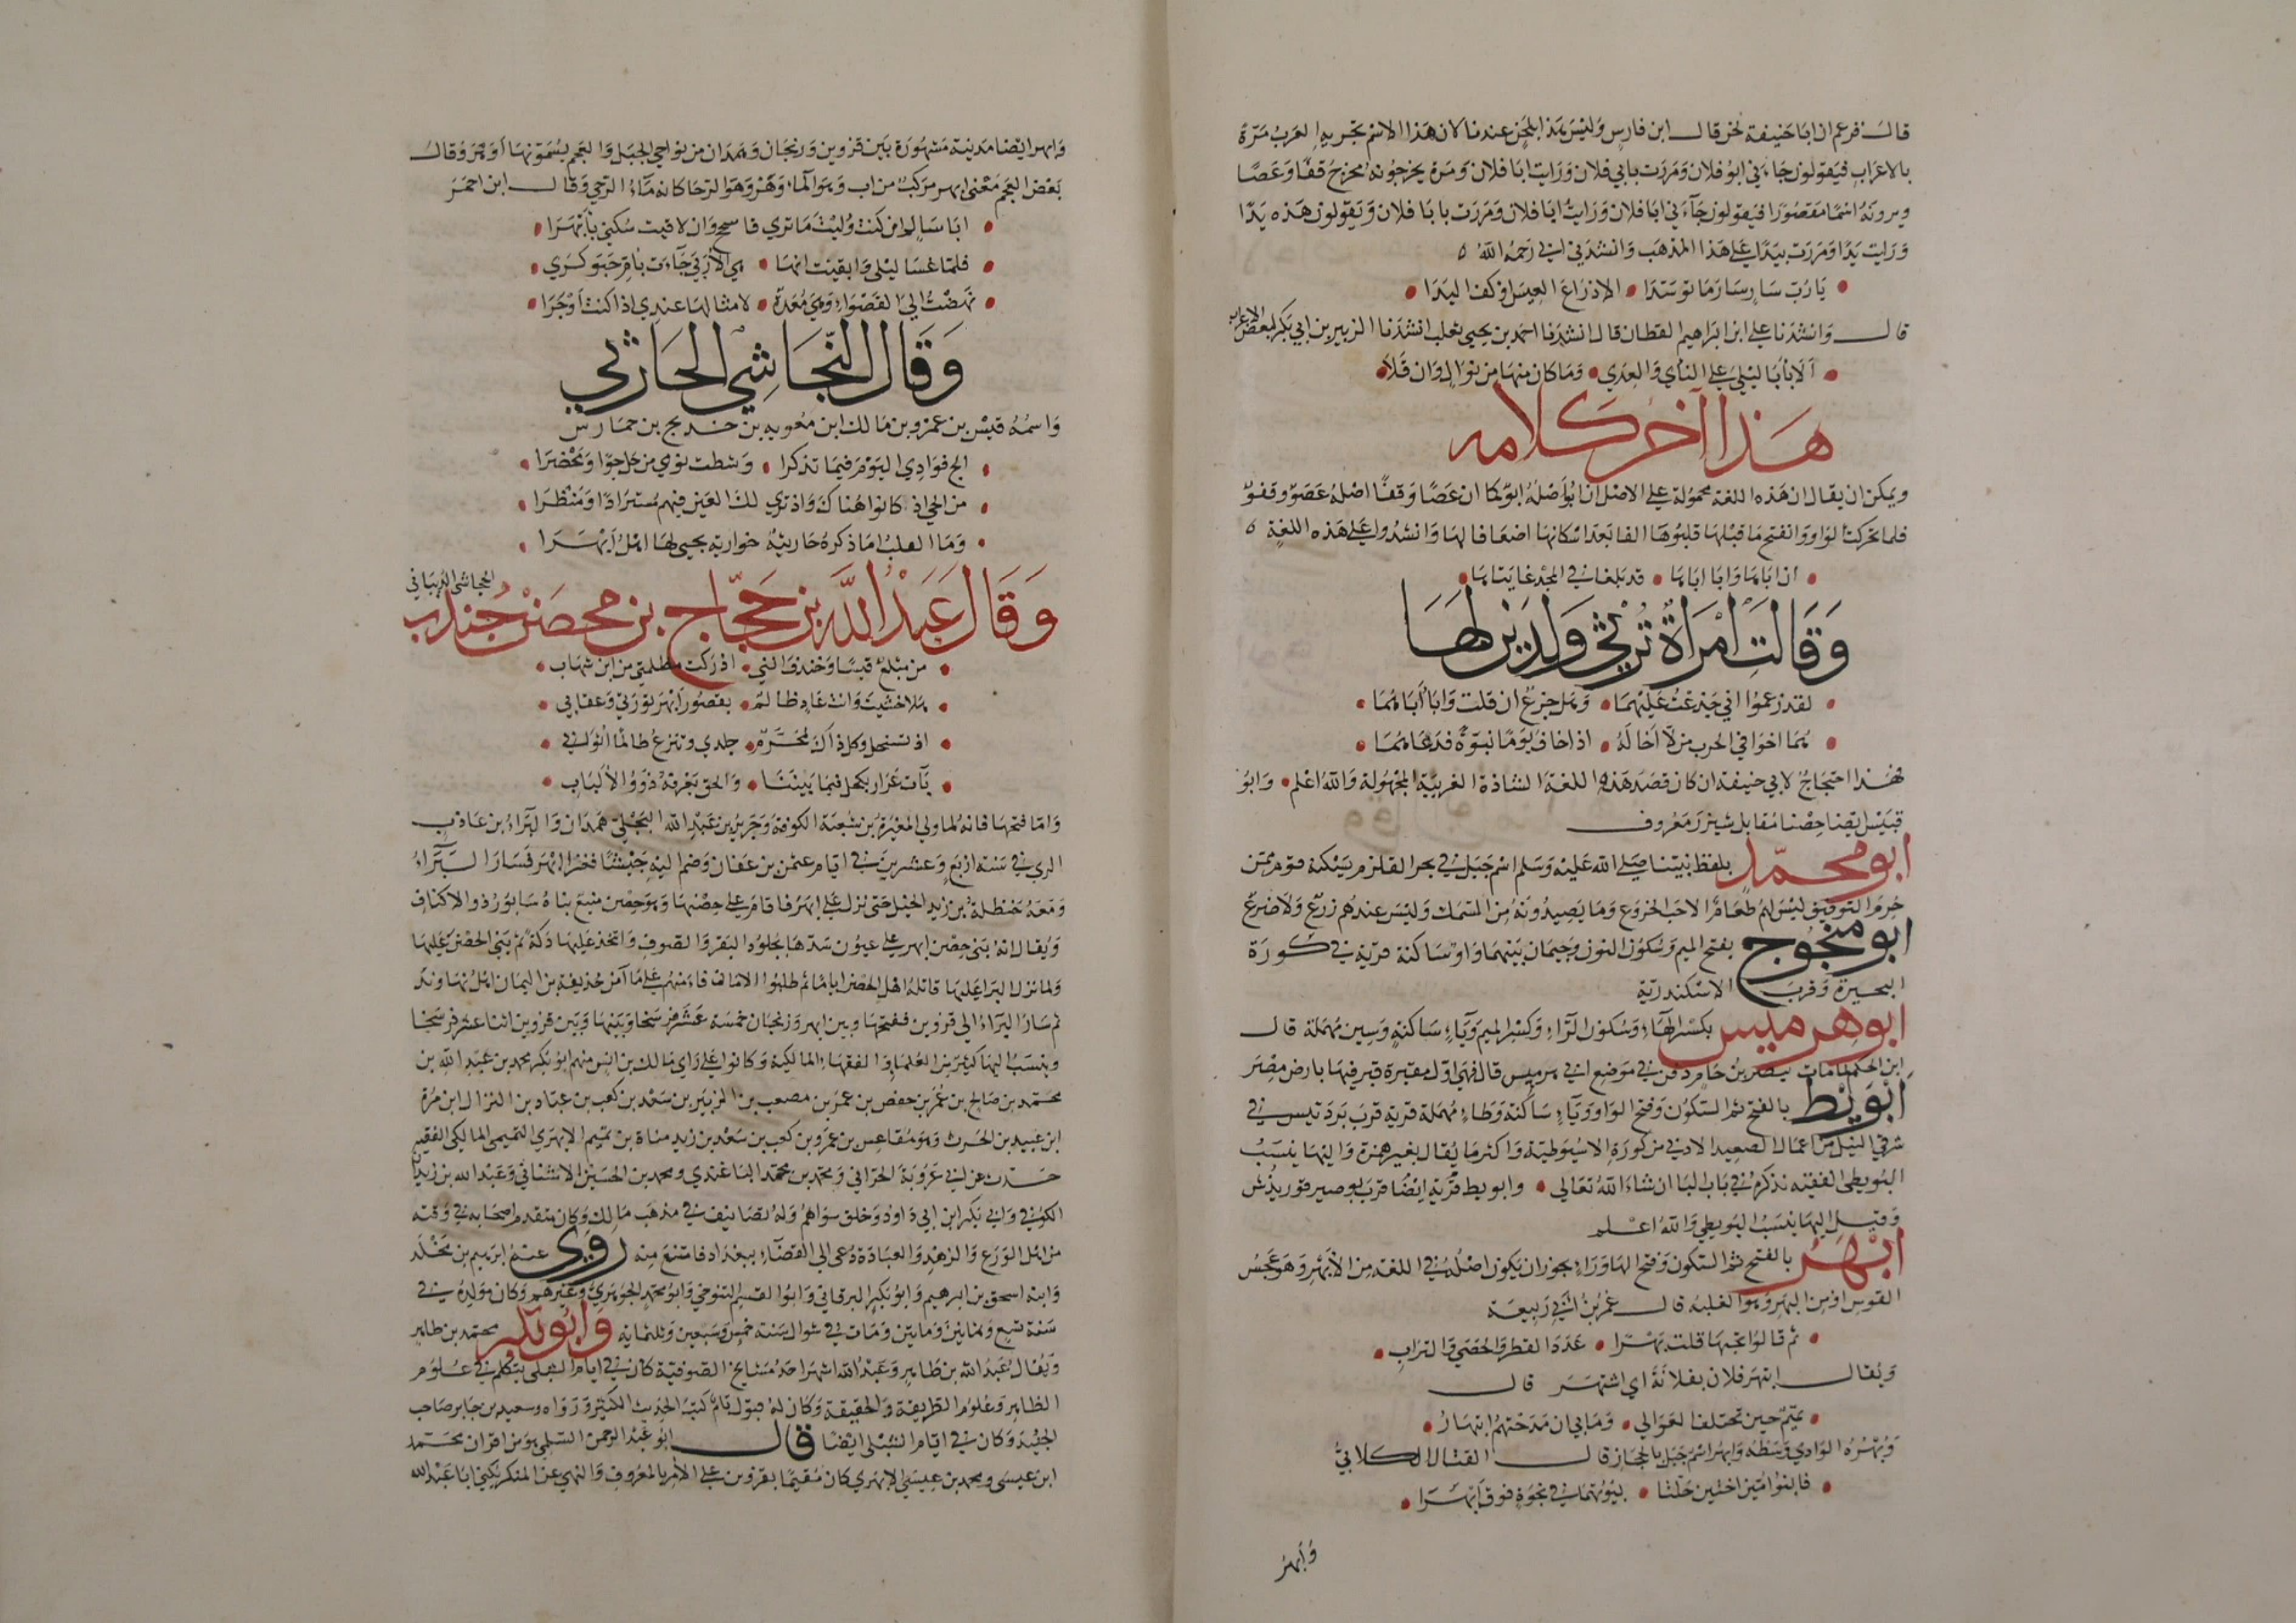 قال فزعم ان ابا حنيفة لحن قال ابن فارس وليس هذا بلحن عندنا لان هذا الاسم تجريه العرب مرة
بالاعراب فيقولون جاءني ابو فلان ومررت بابي فلان ورايت ابا فلان ومرة يخرجونه مخرج قفا وعصا
ويرونه اسما مقصورا فيقولون جآءني ابا فلان ورايت ابا فلان ومررت بابا فلان ويقولون هذه يدا
ورايت يدا ومررت بيدا على هذا المذهب وانشدني ابي رحمه الله
يا رب سار سار ما توسدا • الا ذراع العيس او كف اليدا
قال وانشدنا علي ابن ابراهيم القطان قال انشدنا احمد بن يحيى ثعلب انشدنا الزبير بن ابي بكر لبعض الاعراب
الا بابا ليلى على النأي والعدى • وما كان منها من نوال وان قلا
هذا آخر كلامه
ويمكن ان يقال ان هذه اللغة محمولة على الاصل ان ابو اصله ابو كما ان عصا وقفا اصله عصو وقفو
فلما تحركت الواو وانفتح ما قبلها قلبوها الفا بعد اسكانها اضعافا لها وانشدوا على هذه اللغة
ان اباها وابا اباها • قد بلغا في المجد غايتاها
وقالت امرأة ترثي ولدين لها
لقد زعموا اني جزعت عليهما • وهل جزع ان قلت وا بأباهما
هما اخوا في الحرب من لا اخا له • اذا خاف يوما نبوة فدعاهما
فهذا احتجاج لابي حنيفة ان كان قصد هذه اللغة الشاذة الغريبة المجهولة والله اعلم • وابو
قبيس ايضا حصن مقابل شيزر معروف
ابو محمد بلفظ نبينا صلى الله عليه وسلم اسم جبل في بحر القلزم يسكنه قوم ممن
حرم التوفيق ليس لهم طعام الا حب الخروع وما يصيدونه من السمك وليس عندهم زرع ولا ضرع
ابو منجوج بفتح الميم وسكون النون وجيمان بينهما واو ساكنة قرية في كورة
البحيرة وقرب الاسكندرية
ابو هرميس بكسر الهاء وسكون الراء وكسر الميم وياء ساكنة وسين مهملة قال
ابن الحكم لما مات بيصر بن حام دفن في موضع ابي هرميس قال فهي اول مقبرة قبر فيها بارض مصر
ابويط بالفتح ثم السكون وفتح الواو وياء ساكنة وطاء مهملة قرية قرب بردنيس في
شرقي النيل من اعمال الصعيد الادنى من كورة الاسيوطية واكثر ما يقال بغير همزة واليها ينسب
البويطي الفقيه نذكره في باب البا ان شاء الله تعالى • وابويط قرية ايضا قرب بوصير قوريذس
وقيل اليها ينسب البويطي والله اعلم
ابهر بالفتح ثم السكون وفتح الها وراء يجوز ان يكون اصله في اللغة من الابهر وهو عجس
القوس او من البهر وهو الغلبة قال عمر بن ابي ربيعة
ثم قالوا تحبها قلت بهرا • عدد القطر والحصى والتراب
ويقال ابتهر فلان بفلانة اي اشتهر قال
تهيم حين تختلف العوالي • وما بي ان مدحتهم ابتهار
وبهرة الوادي وسطه وابهر اسم جبل بالحجاز قال القتال الكلابي
فانا بنو امين اختين حلتا • بيوتهما في نجوة فوق ابهرا
وابهر
وابهر ايضا مدينة مشهورة بين قزوين وزنجان وهمدان من نواحي الجبل والعجم يسمونها اوهر وقال
بعض العجم معنى ابهر مركب من اب وهو الماء وهر وهو الرحا كانه ماء الرحى وقال ابن احمر
ابا سالم ان كنت وليت ما ترى فاسجح وان لاقيت سكنى بأبهرا
فلما غسا ليلى وايقنت انها • هي الأربى جاءت بأم حبوكرى
نهضت الى القصواء وهي معدة • لامثالها عندي اذا كنت اوجرا
وقال النجاشي الحارثي
واسمه قيس بن عمرو بن مالك ابن معوية بن خديج بن حماس
الج فؤادي اليوم فيما تذكرا • وشطت نوى من حل جوا ومحضرا
من الحي اذ كانوا هناك واذ ترى لك العين فيهم مسترادا ومنظرا
وما القلب اما ذكره حارثية خوارية يحيى لها اهل ابهرا
وقال عبد الله بن حجاج بن محصن بن جندب الجحاشي الذبياني
من مبلغ قيسا وخندف انني • ادركت مظلمتي من ابن شهاب
هلا خشيت وانت عاد ظالم • بقصور ابهر نؤرتي وعقابي
اذ تستحل وكل ذاك محرم • جلدي وتنزع ظالما اثوابي
باءت عرار بكحل فيما بيننا • والحق يعرفه ذووا الالباب
واما فتحها فانه لما ولي المغيرة بن شعبة الكوفة وجرير بن عبد الله البجلي همدان والبراء بن عازب
الري في سنة اربع وعشرين في ايام عثمن بن عفان وضم اليه جيشا فغزا ابهر فسار البراء
ومعه حنظلة بن زيد الخيل حتى نزل على ابهر فاقام على حصنها وهو حصن منيع بناه سابور ذو الاكتاف
ويقال انه بنى حصن ابهر على عيون سدها بجلود البقر والصوف واتخذ عليها دكة ثم بنى الحصن عليها
ولما نزل البرا عليها قاتله اهل الحصن اياما ثم طلبوا الامان فامنهم على ما آمن حذيفة بن اليمان اهل نهاوند
ثم سار البراء الى قزوين ففتحها وبين ابهر وزنجان خمسة عشر فرسخا وبينها وبين قزوين اثنا عشر فرسخا
وينسب اليها كثير من العلماء والفقهاء المالكية وكانوا على راي مالك بن انس منهم ابو بكر محمد بن عبد الله بن
محمد بن صالح بن عمر بن حفص بن عمر بن مصعب بن الزبير بن سعد بن كعب بن عباد بن النزال ابن مرة
ابن عبيد بن الحرث وهو مقاعس بن عمرو بن كعب بن سعد بن زيد مناة بن تميم الابهري التميمي المالكي الفقيه
حدث عن ابي عروبة الحراني ومحمد بن محمد الباغندي ومحمد بن الحسين الاشناني وعبد الله بن زيدان
الكوفي وابي بكر ابن ابي داود وخلق سواهم وله تصانيف في مذهب مالك وكان مقدم اصحابه في وقته
من اهل الورع والزهد والعبادة دعي الى القضاء ببغداد فامتنع منه روى عنه ابرهيم بن مخلد
وابنه اسحق بن ابرهيم وابو بكر البرقاني وابو القسم التنوخي وابو محمد الجوهري وغيرهم وكان مولده في
سنة تسع وثمانين ومايتين ومات في شوال سنة خمس وسبعين وثلثماية وابو بكر محمد بن طاهر
ويقال عبد الله بن طاهر وعبد الله اشهر احد مشايخ الصوفية كان في ايام الشبلي يتكلم في علوم
الظاهر وعلوم الطريقة والحقيقة وكان له قبول تام كتب الحديث الكثير ورواه وسعيد بن جابر صاحب
الجنيد وكان في ايام الشبلي ايضا قال ابو عبد الرحمن السلمي هو من اقران محمد
ابن عيسى ومحمد بن عيسى الابهري كان مقيما بقزوين على الامر بالمعروف والنهي عن المنكر يكنى ابا عبد الله